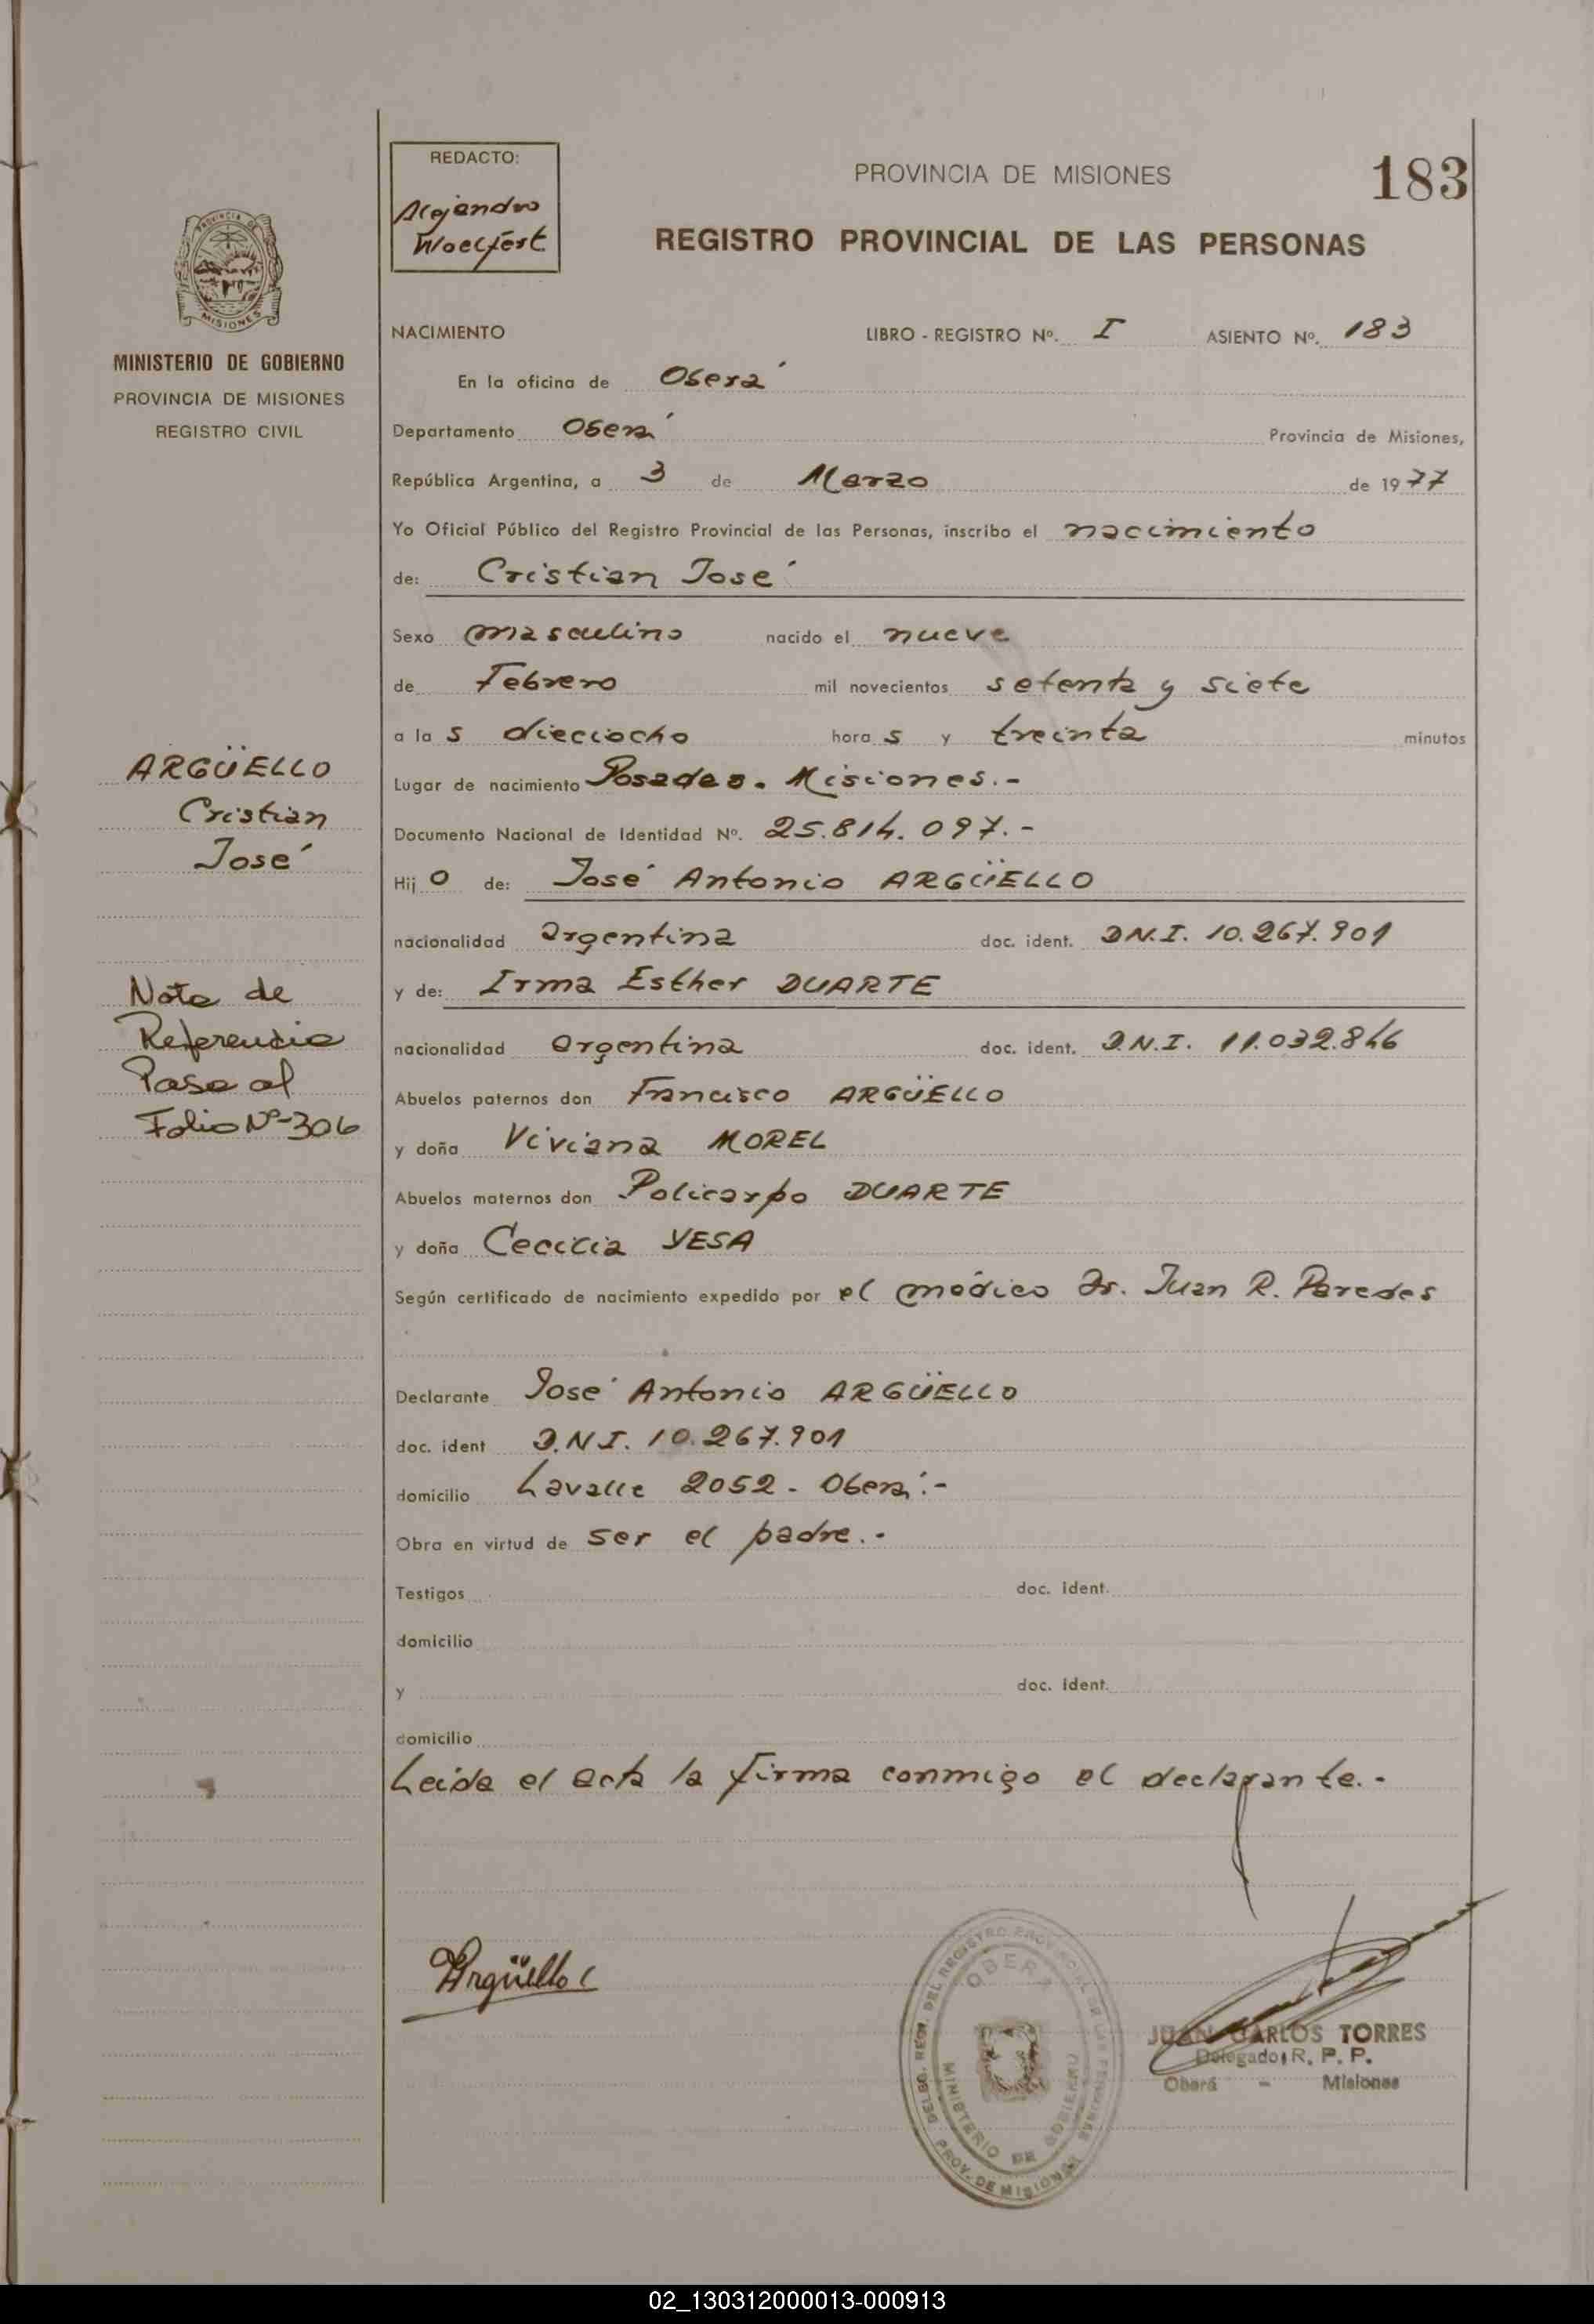 183
REDACTO:
Alejandro
Woelfert
PROVINCIA DE MISIONES
REGISTRO PROVINCIAL DE LAS PERSONAS
PROVINCIA DE
MISIONES
MINISTERIO DE GOBIERNO
PROVINCIA DE MISIONES
REGISTRO CIVIL
NACIMIENTO LIBRO - REGISTRO Nº. I ASIENTO Nº. 183
En la oficina de Oberá
Departamento Oberá Provincia de Misiones,
República Argentina, a 3 de Marzo de 1977
Yo Oficial Público del Registro Provincial de las Personas, inscribo el nacimiento
de: Cristian José
Sexo masculino nacido el nueve
de Febrero mil novecientos setenta y siete
a las dieciocho horas y treinta minutos
Lugar de nacimiento Posadas. Misiones.-
Documento Nacional de Identidad Nº. 25.814.097.-
Hijo de: José Antonio ARGÜELLO
nacionalidad argentina doc. ident. D.N.I. 10.267.901
y de: Irma Esther DUARTE
nacionalidad argentina doc. ident. D.N.I. 11.032.846
Abuelos paternos don Francisco ARGÜELLO
y doña Viviana MOREL
Abuelos maternos don Policarpo DUARTE
y doña Cecilia YESA
Según certificado de nacimiento expedido por el médico Dr. Juan R. Paredes
Declarante José Antonio ARGÜELLO
doc. ident D.N.I. 10.267.901
domicilio Lavalle 2052 - Oberá.-
Obra en virtud de ser el padre.-
Testigos doc. ident.
domicilio
y doc. ident.
domicilio
Leída el acta la firma conmigo el declarante.-
ARGÜELLO
Cristian
José
Nota de
Referencia
Pasa al
Folio Nº-306
Argüello
OBERA
MINISTERIO DE GOBIERNO
PROV. DE MISIONES
JUAN CARLOS TORRES
Delegado R. P. P.
Oberá - Misiones
02_130312000013-000913